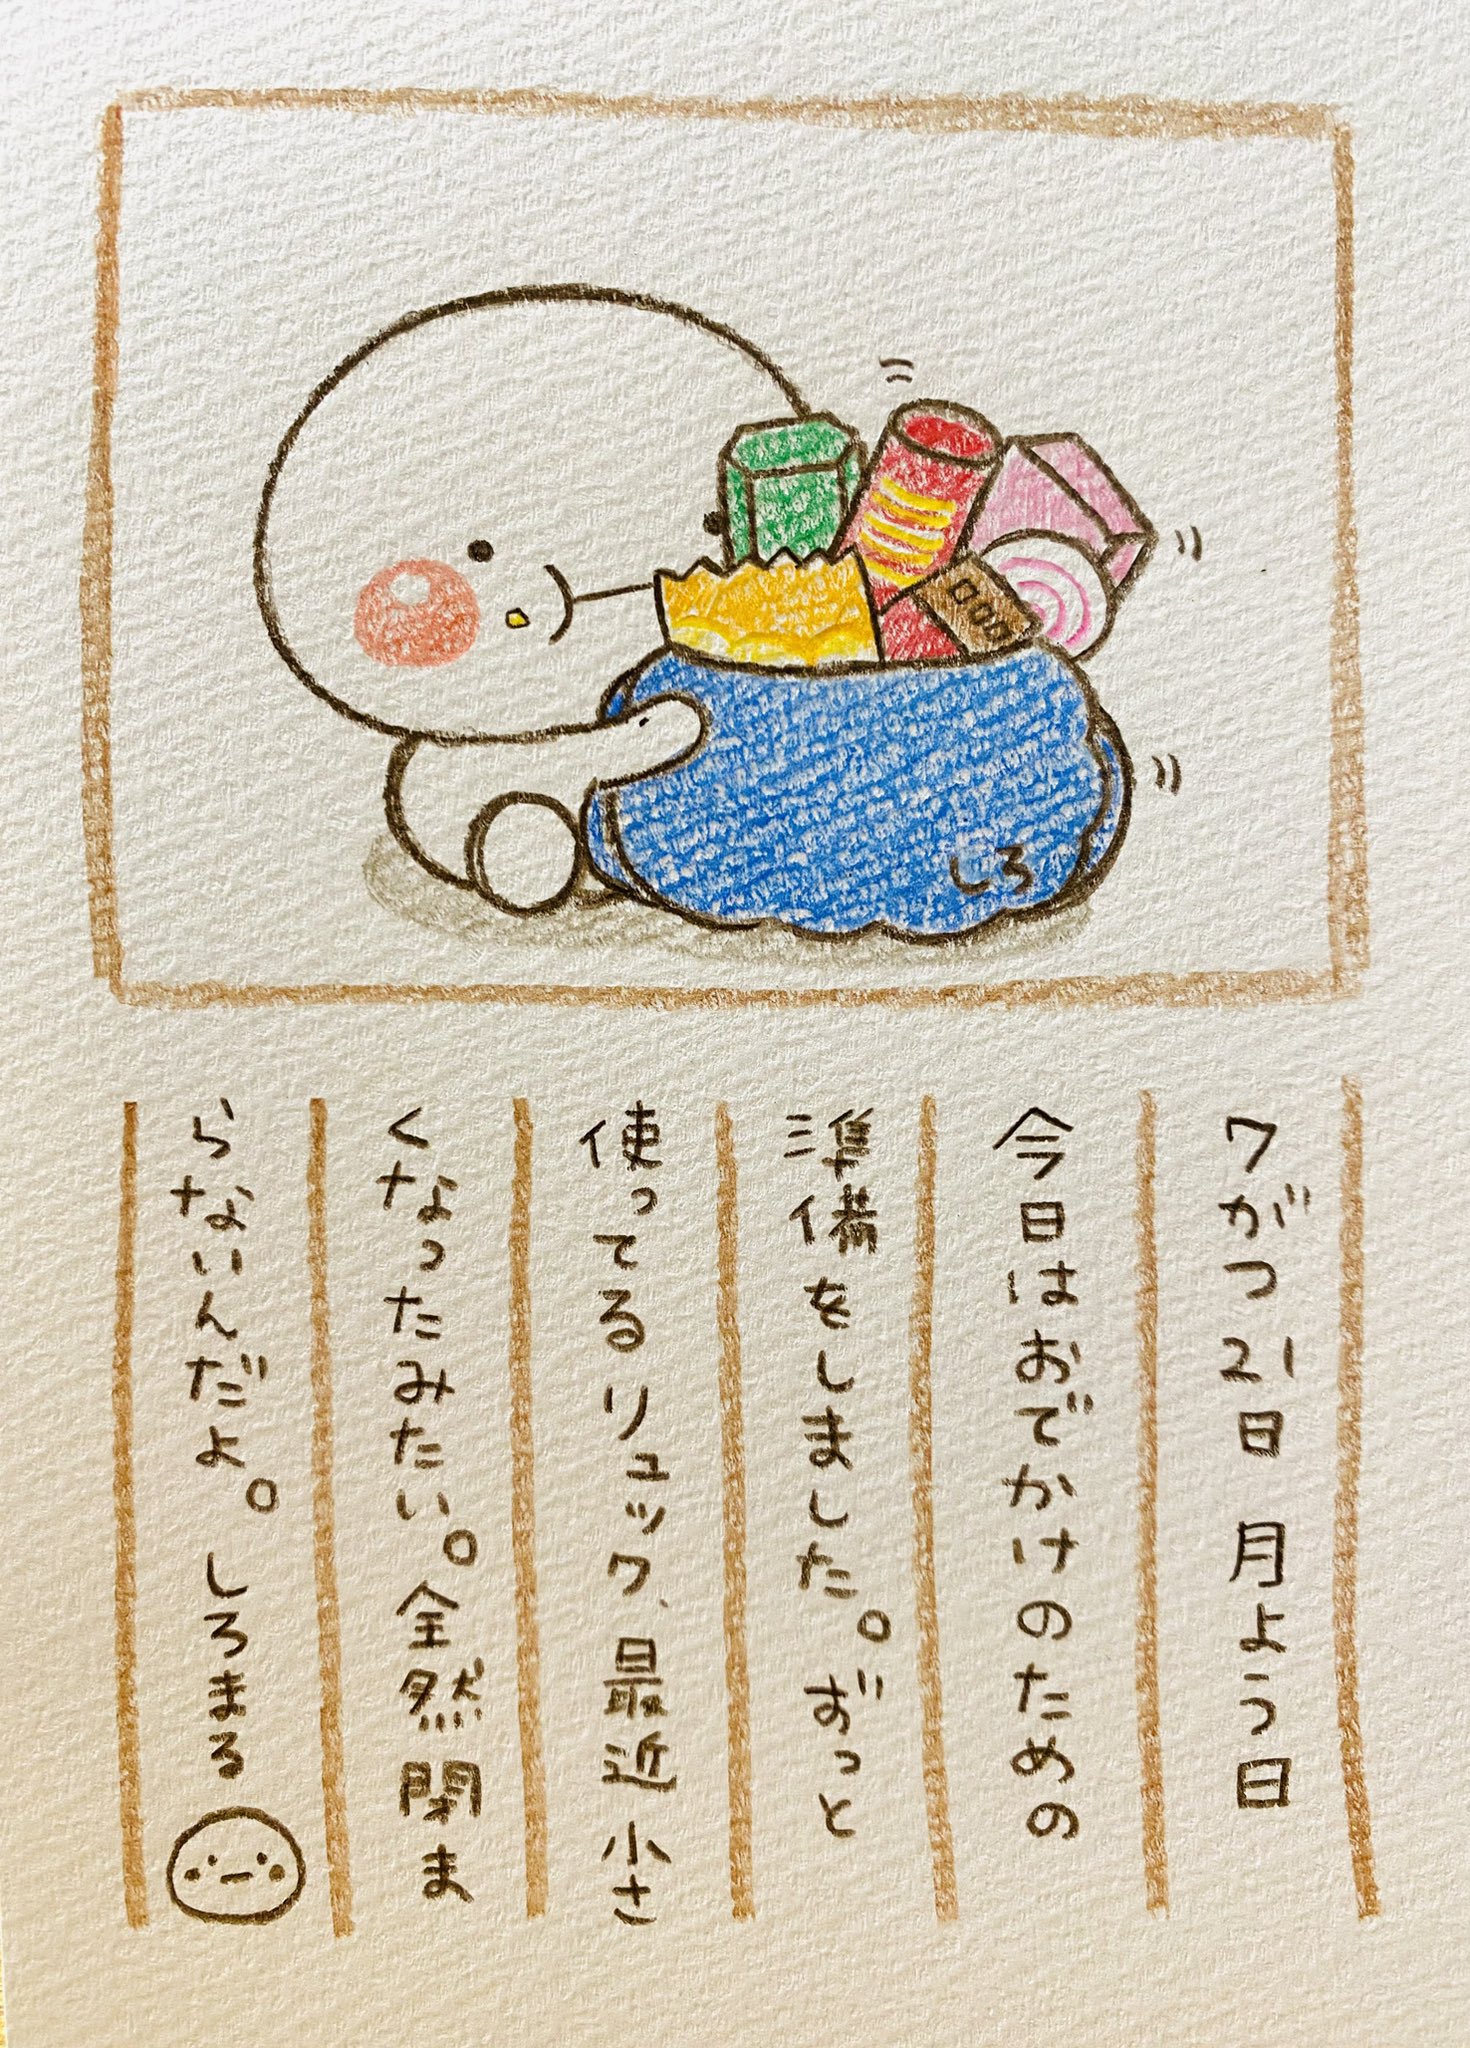 しろ
7がつ21日 月よう日
今日はおでかけのための
準備をしました。ずっと
使ってるリュック、最近小さ
くなったみたい。全然閉ま
らないんだよ。しろまる